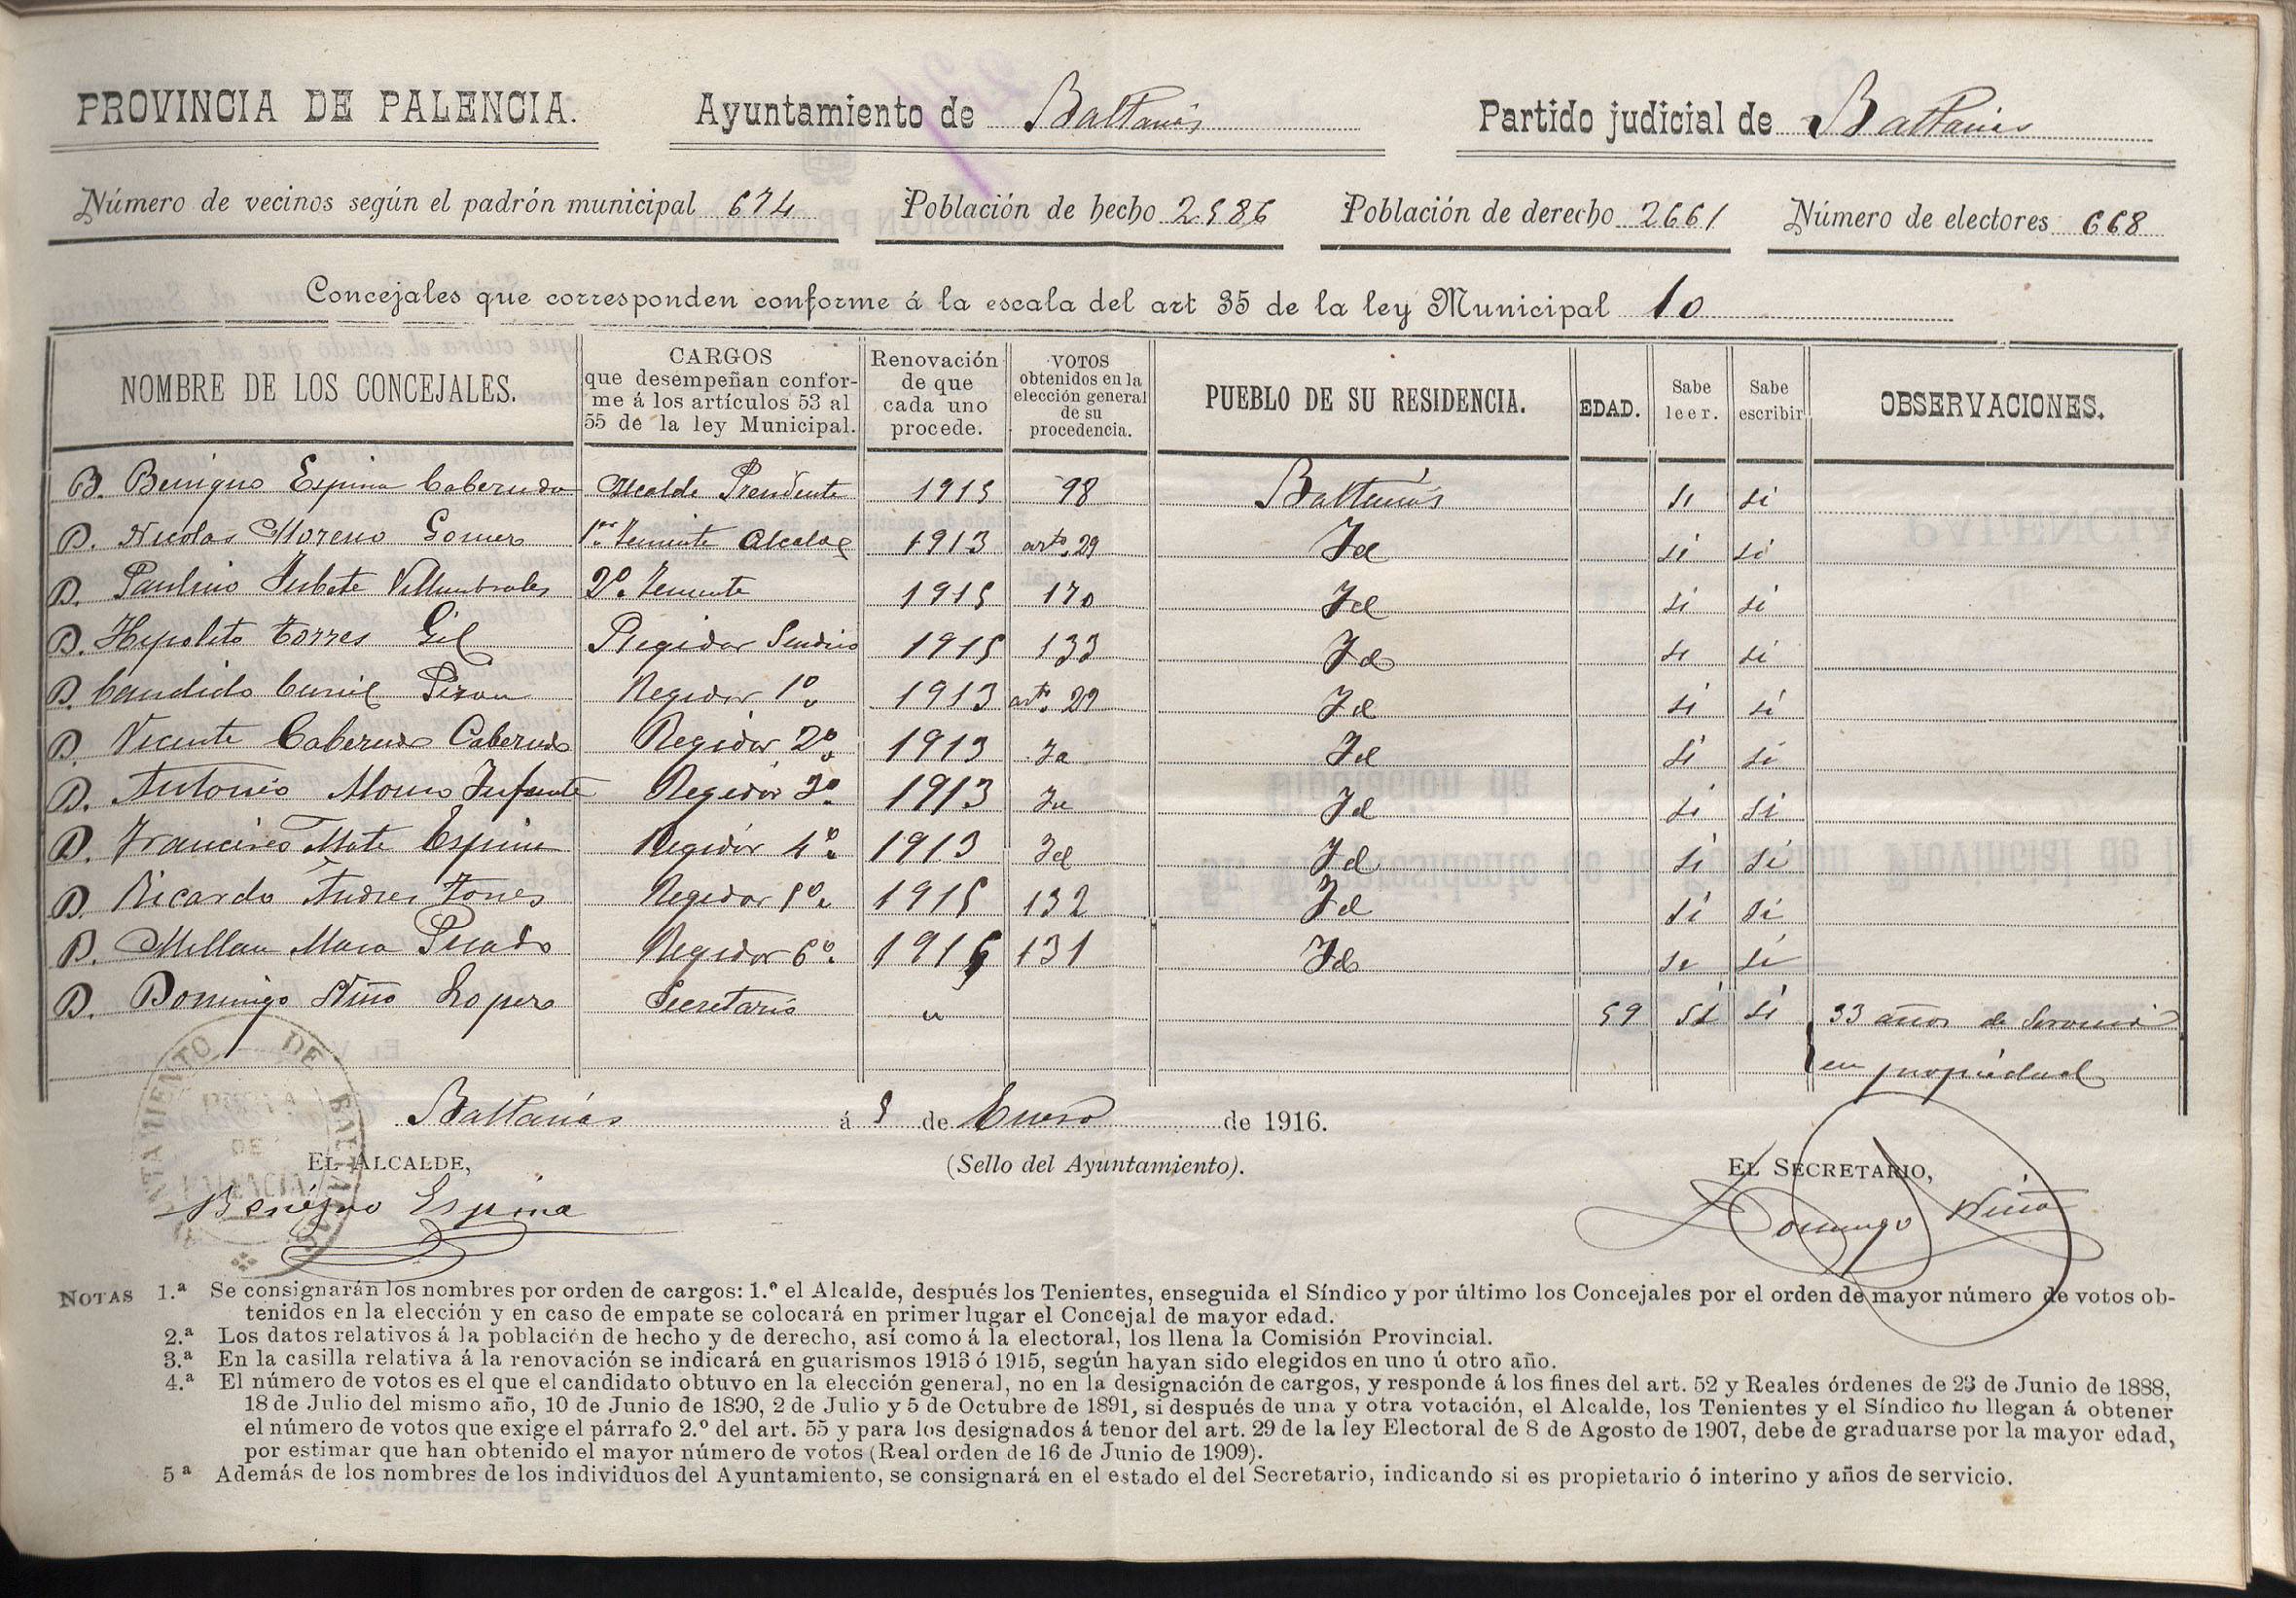 PROVINCIA DE PALENCIA. Ayuntamiento de Baltanás Partido judicial de Baltanás
Número de vecinos según el padrón municipal 674 Población de hecho 2586 Población de derecho 2661 Número de electores 668
Concejales que corresponden conforme á la escala del art 35 de la ley Municipal 10
NOMBRE DE LOS CONCEJALES. CARGOS que desempeñan confor-me á los artículos 53 al 55 de la ley Municipal. Renovación de que cada uno procede. VOTOS obtenidos en la elección general de su procedencia. PUEBLO DE SU RESIDENCIA. EDAD. Sabe leer. Sabe escribir OBSERVACIONES.
D. Benigno Espina Cabezudo Alcalde Presidente 1915 98 Baltanás si si
D. Nicolas Moreno Gomez 1er Teniente Alcalde 1913 arto. 29 Id si si
D. Paulino Villumbrales 2º Teniente 1915 170 Id si si
D. Hypolito Torres Gil Regidor Sindico 1915 133 Id si si
D. Candido Curiel Regidor 1º 1913 arto. 29 Id si si
D. Vicente Cabezudo Cabezudo Regidor 2º 1913 Id Id si si
D. Antonio Infante Regidor 3º 1913 Id Id si si
D. Francisco Mate Espina Regidor 4º 1913 Id Id si si
D. Ricardo Andres Torres Regidor 5º 1915 132 Id si si
D. Millan Regidor 6º 1915 131 Id si si
D. Domingo Niño Secretario " 59 si si 33 años de Servicio
en propiedad
Baltanás á 5 de Enero de 1916.
EL ALCALDE, (Sello del Ayuntamiento). EL SECRETARIO,
Benigno Espina Domingo Niño
AYUNTAMIENTO DE BALTANÁS
DE
PALENCIA
NOTAS 1.ª Se consignarán los nombres por orden de cargos: 1.º el Alcalde, después los Tenientes, enseguida el Síndico y por último los Concejales por el orden de mayor número de votos ob-
tenidos en la elección y en caso de empate se colocará en primer lugar el Concejal de mayor edad.
2.ª Los datos relativos á la población de hecho y de derecho, así como á la electoral, los llena la Comisión Provincial.
3.ª En la casilla relativa á la renovación se indicará en guarismos 1913 ó 1915, según hayan sido elegidos en uno ú otro año.
4.ª El número de votos es el que el candidato obtuvo en la elección general, no en la designación de cargos, y responde á los fines del art. 52 y Reales órdenes de 23 de Junio de 1888,
18 de Julio del mismo año, 10 de Junio de 1890, 2 de Julio y 5 de Octubre de 1891, si después de una y otra votación, el Alcalde, los Tenientes y el Síndico no llegan á obtener
el número de votos que exige el párrafo 2.º del art. 55 y para los designados á tenor del art. 29 de la ley Electoral de 8 de Agosto de 1907, debe de graduarse por la mayor edad,
por estimar que han obtenido el mayor número de votos (Real orden de 16 de Junio de 1909).
5ª Además de los nombres de los individuos del Ayuntamiento, se consignará en el estado el del Secretario, indicando si es propietario ó interino y años de servicio.